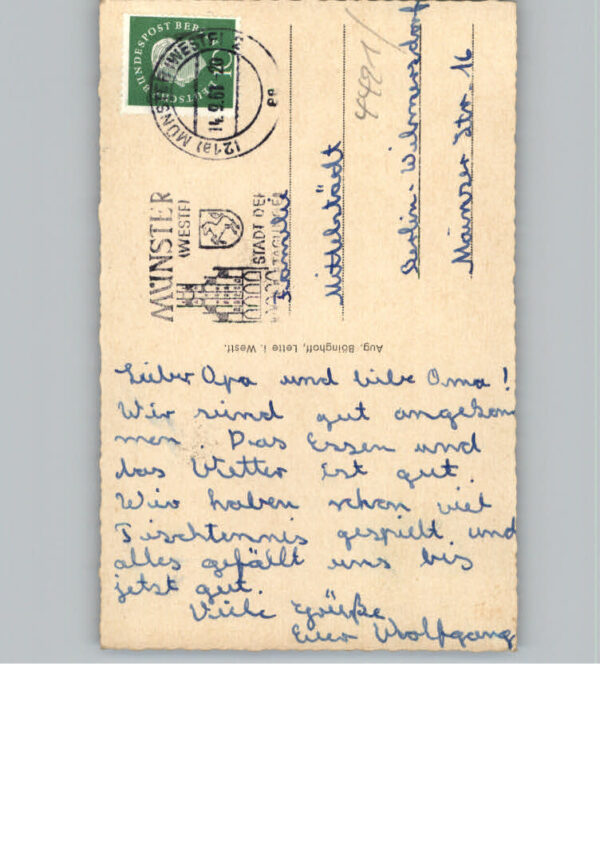 Lieber Opa und liebe Oma!
Wir sind gut angekom
men. Das Essen und
das Wetter ist gut.
Wir haben schon viel
Tischtennis gespielt und
alles gefällt uns bis
jetzt gut.
Viele Grüße
Euer Wolfgang
Aug. Böinghoff, Lette i. Westf.
Familie
Mittelstädt
Berlin-Wilmersdorf
Mainzer Str. 16
4491/
DEUTSCHE BUNDESPOST BERLIN
10
(21a) MÜNSTER (WESTF)
14.9.61-20
MÜNSTER
(WESTF)
STADT DER
TAGUNGEN